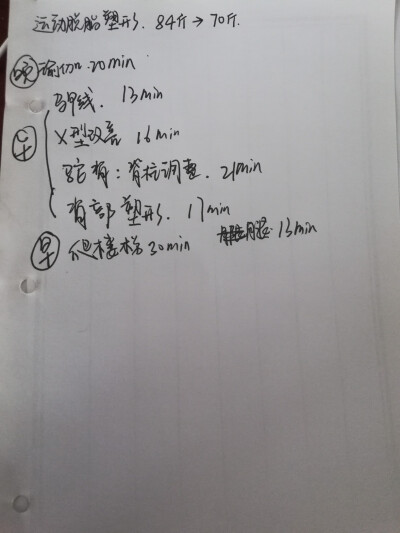 运动脱脂塑形. 84斤→70斤.
晚 瑜伽 20min
马甲线. 13min
午 X型改善 16min
驼背:脊柱调整. 21min
背部塑形. 17min
早 爬楼梯 30min 13min